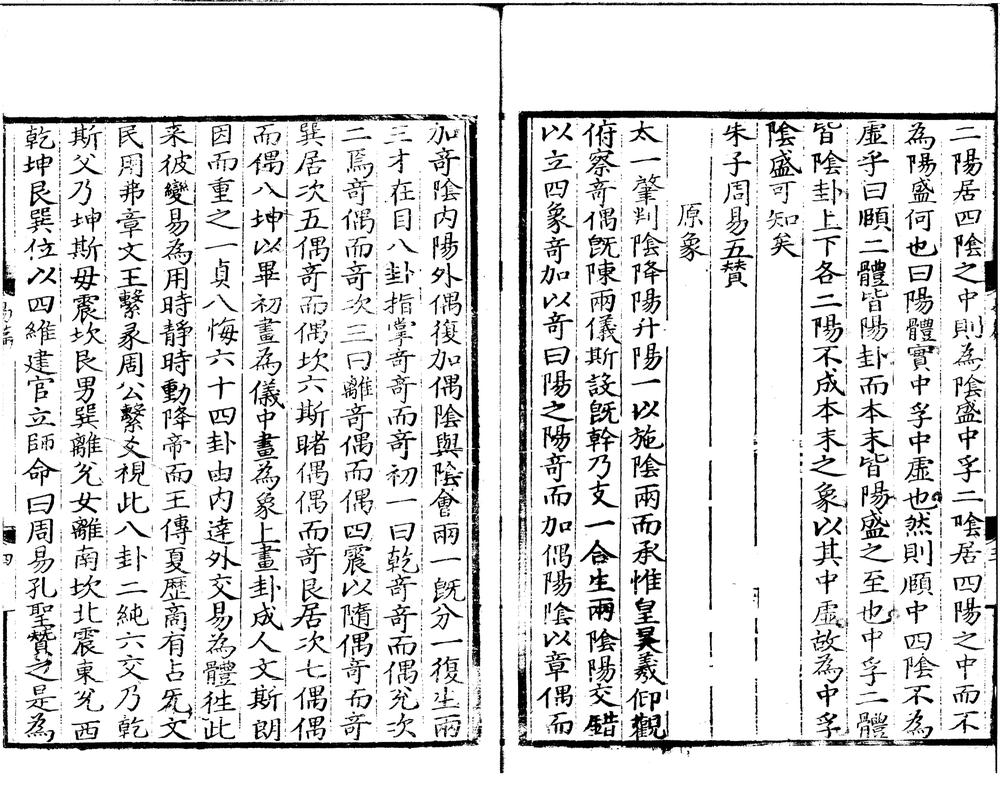 二陽居四陰之中則為陰盛中孚二陰居四陽之中而不
為陽盛何也曰陽體實中孚中虛也然則頤中四陰不為
虛乎曰頤二體皆陽卦而本末皆陽盛之至也中孚二體
皆陰卦上下各二陽不成本末之象以其中虛故為中孚
陰盛可知矣
朱子周易五贊
原象
太一肇判陰降陽升陽一以施陰兩而承惟皇昊羲仰觀
俯察奇偶既陳兩儀斯設既幹乃支一合生兩陰陽交錯
以立四象奇加以奇曰陽之陽奇而加偶陽陰以章偶而
加奇陰內陽外偶復加偶陰與陰會兩一既分一復生兩
三才在目八卦指掌奇奇而奇初一曰乾奇奇而偶兌次
二焉奇偶而奇次三曰離奇偶而偶四震以隨偶奇而奇
巽居次五偶奇而偶坎六斯睹偶偶而奇艮居次七偶偶
而偶八坤以畢初畫為儀中畫為象上畫卦成人文斯朗
因而重之一貞八悔六十四卦由內達外交易為體徃此
来彼變易為用時靜時動降帝而王傳夏歷商有占无文
民用弗章文王繫彖周公繫爻視此八卦二純六交乃乾
斯父乃坤斯毋震坎艮男巽離兌女離南坎北震東兌西
乾坤艮巽位以四維建官立師命曰周易孔聖贊之是為
四